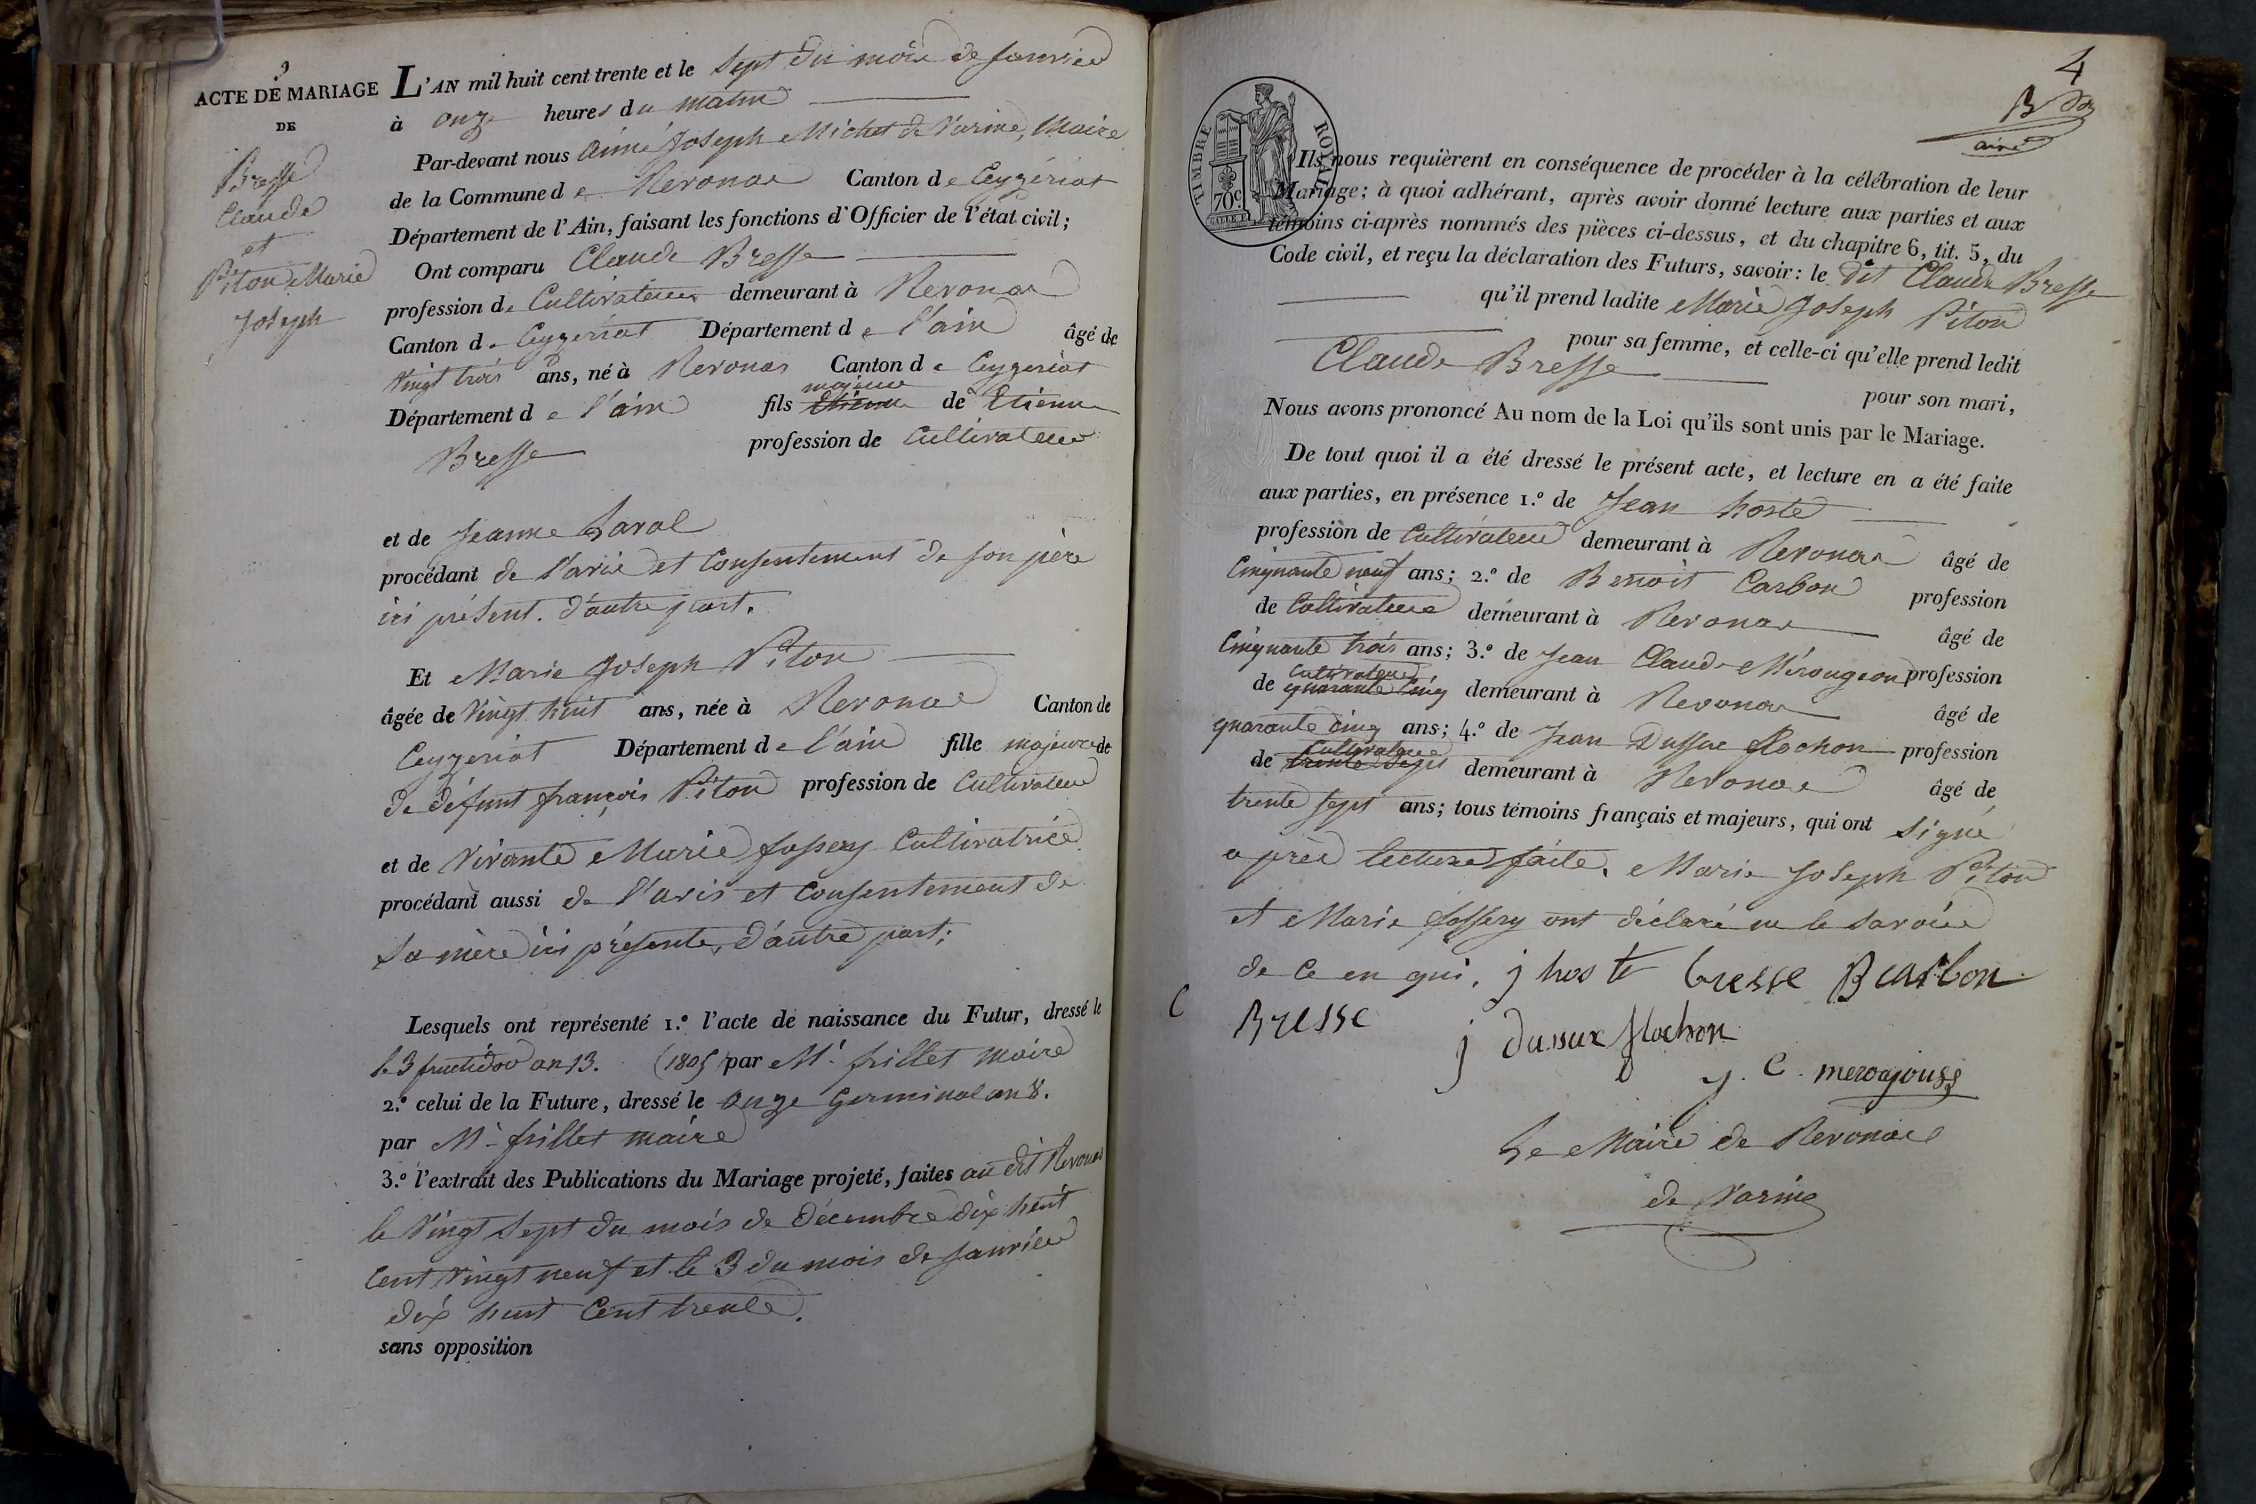 3
ACTE DE MARIAGE
DE
Bresse
Claude
et
Piton Marie
Joseph
L'AN mil huit cent trente et le sept du mois de Janvier
à onze heures du matin
Par-devant nous Aimé Joseph Michet de Varine, Maire
de la Commune de Revonas Canton de Ceyzériat
Département de l'Ain, faisant les fonctions d'Officier de l'état civil;
Ont comparu Claude Bresse
profession de Cultivateur demeurant à Revonas
Canton de Ceyzeriat Département de l'ain âgé de
vingt trois ans, né à Revonas Canton de Ceyzeriat
majeur
Département de l'ain fils Etienne de Etienne
Bresse profession de Cultivateur
et de Jeanne Laval
procédant de l'avis et Consentement de son père
ici présent. d'autre part.
Et Marie Joseph Piton
âgée de vingt huit ans, née à Revonas Canton de
Ceyzeriat Département de l'ain fille majeure de
de défunt françois Piton profession de Cultivateur
et de vivante Marie Jossery Cultivatrice
procédant aussi de l'avis et Consentement de
sa mère ici présente, d'autre part;
Lesquels ont représenté 1.º l'acte de naissance du Futur, dressé le
le 3 fructidor an 13. (1805 par Mr. frillet maire
2.º celui de la Future, dressé le onze Germinal an 8.
par Mr. frillet maire
3.º l'extrait des Publications du Mariage projeté, faites au dit Revonas
le vingt sept du mois de décembre dix huit
cent vingt neuf et le 3 du mois de Janvier
dix huit Cent trente.
sans opposition
4
TIMBRE ROYAL
70c.
Ils nous requièrent en conséquence de procéder à la célébration de leur
Mariage; à quoi adhérant, après avoir donné lecture aux parties et aux
témoins ci-après nommés des pièces ci-dessus, et du chapitre 6, tit. 5, du
Code civil, et reçu la déclaration des Futurs, savoir: le dit Claude Bresse
qu'il prend ladite Marie Joseph Piton
pour sa femme, et celle-ci qu'elle prend ledit
Claude Bresse pour son mari,
Nous avons prononcé Au nom de la Loi qu'ils sont unis par le Mariage.
De tout quoi il a été dressé le présent acte, et lecture en a été faite
aux parties, en présence 1.º de Jean hoste
profession de Cultivateur demeurant à Revonas âgé de
Cinquante neuf ans; 2.º de Benoit Carbon profession
de Cultivateur demeurant à Revonas âgé de
Cinquante trois ans; 3.º de Jean Claude Mérougeon profession
Cultivateur
de quarante Cinq demeurant à Revonas âgé de
quarante cinq ans; 4.º de Jean Dussue flochon profession
Cultivateur
de trente sept demeurant à Revonas âgé de
trente sept ans; tous témoins français et majeurs, qui ont signé
après lecture faite. Marie Joseph Piton
et Marie Jossery ont déclaré ne le savoir
de ce en qui. j hoste bresse B carbon
C Bresse
j dussux flochon
j. C. merougouss
Le Maire de Revonas
de Varine